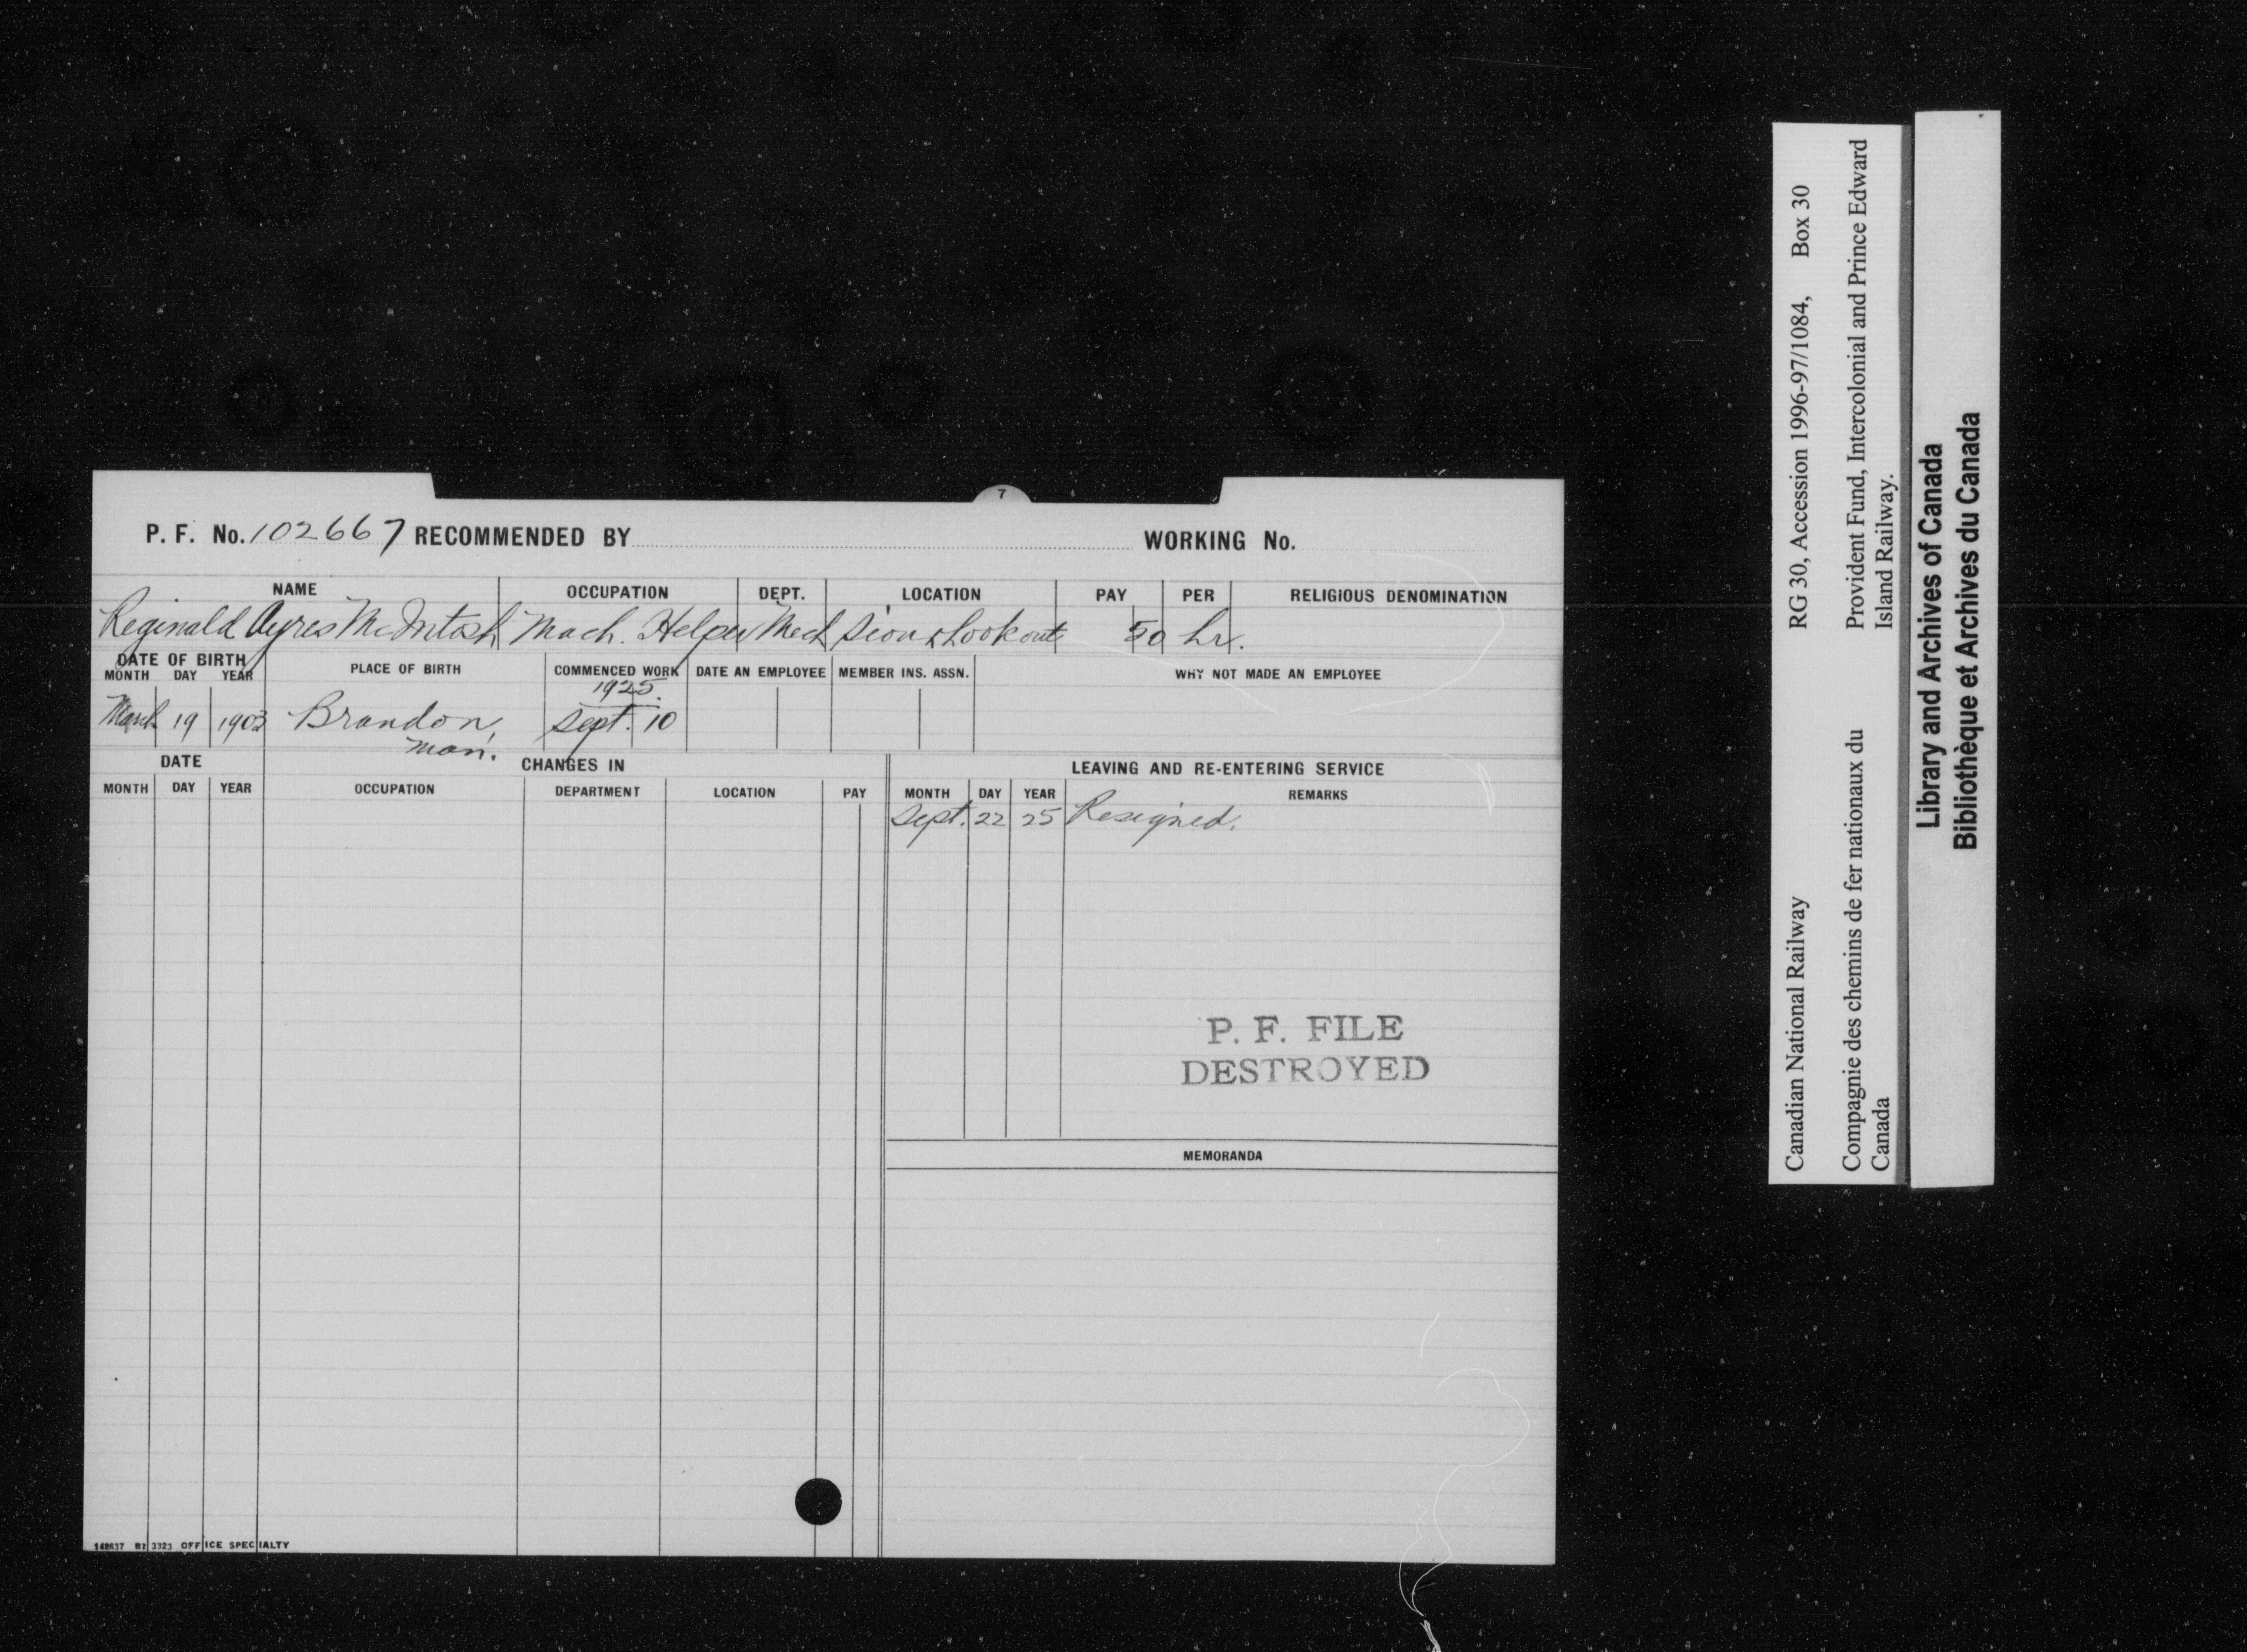 7
P. F. No. 102667 RECOMMENDED BY WORKING No.
NAME OCCUPATION DEPT. LOCATION PAY PER RELIGIOUS DENOMINATION
Reginald Ayres McIntosh Mach. Helper Mech Sioux Lookout 50 hr.
DATE OF BIRTH PLACE OF BIRTH COMMENCED WORK DATE AN EMPLOYEE MEMBER INS. ASSN. WHY NOT MADE AN EMPLOYEE
MONTH DAY YEAR
1925.
March 19 1903 Brandon, Sept. 10
Man.
DATE CHANGES IN LEAVING AND RE-ENTERING SERVICE
MONTH DAY YEAR OCCUPATION DEPARTMENT LOCATION PAY MONTH DAY YEAR REMARKS
Sept. 22 25 Resigned.
P. F. FILE
DESTROYED
MEMORANDA
148637 B1 3323 OFFICE SPECIALTY
Canadian National Railway RG 30, Accession 1996-97/1084, Box 30
Compagnie des chemins de fer nationaux du
Canada
Provident Fund, Intercolonial and Prince Edward
Island Railway.
Library and Archives of Canada
Bibliothèque et Archives du Canada